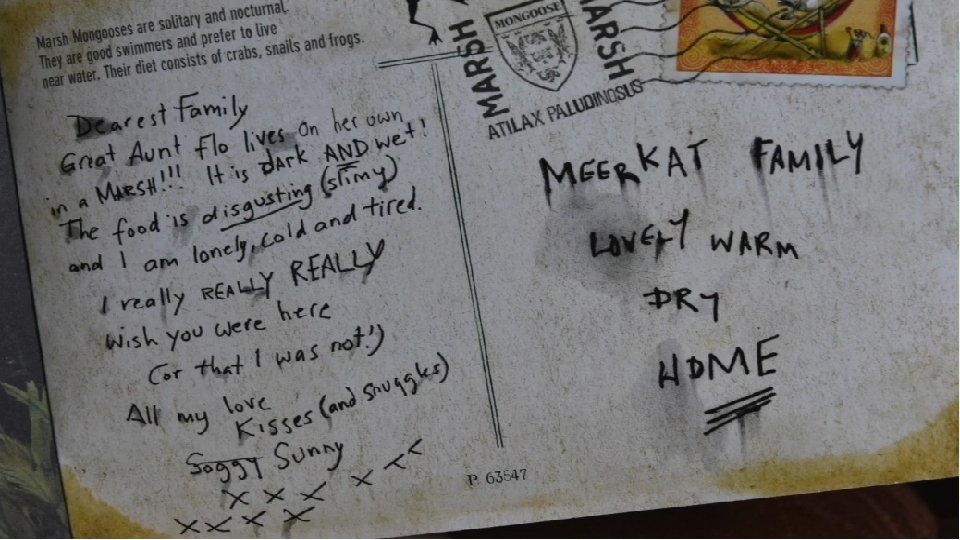 Marsh Mongooses are solitary and nocturnal.
They are good swimmers and prefer to live
near water. Their diet consists of crabs, snails and frogs.
Dearest Family
Great Aunt Flo lives on her own
in a MARSH!!! It is DARK AND wet!
The food is disgusting (slimy)
and I am lonely, cold and tired.
I really REALLY REALLY
wish you were here
(or that I was not!)
All my love
Kisses (and snuggles)
Soggy Sunny
x x x x x x
x x x x
MARSH
MONGOOSE
MARSH
ATILAX PALUDINOSUS
MEERKAT FAMILY
LOVELY WARM
DRY
HOME
P 63547